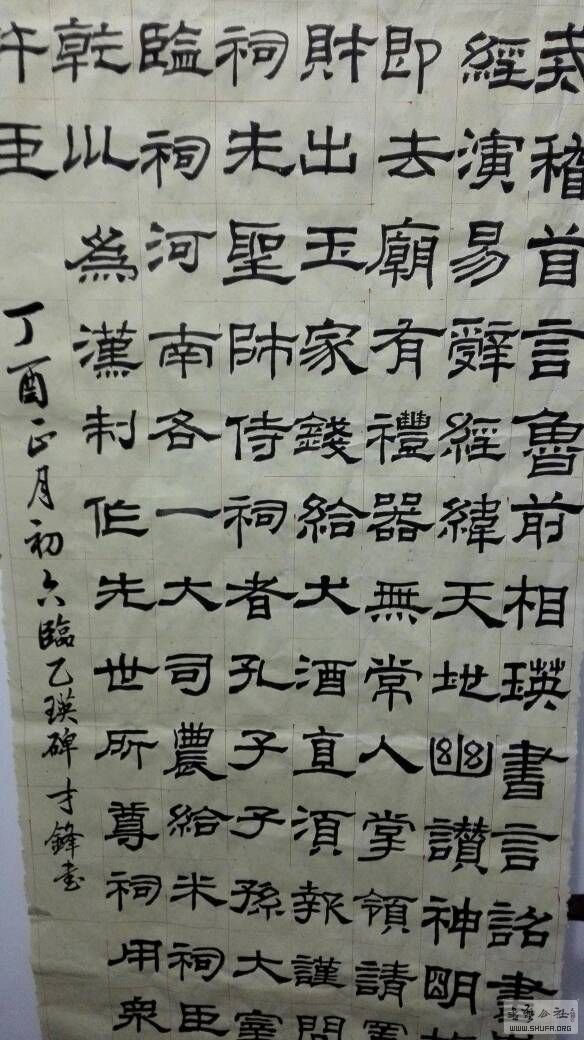 義稽首言魯前相瑛書言詔書崇
經演易辭經緯天地幽讚神明故
即去廟有禮器無常人掌領請置
財出王家錢給犬酒直須報謹問
祠先聖師侍祠者孔子子孫大宰
臨祠河南各一大司農給米祠臣
乾以為漢制作先世所尊祠用衆
許臣
丁酉正月初六臨乙瑛碑才鋒書
WWW.SHUFA.ORG